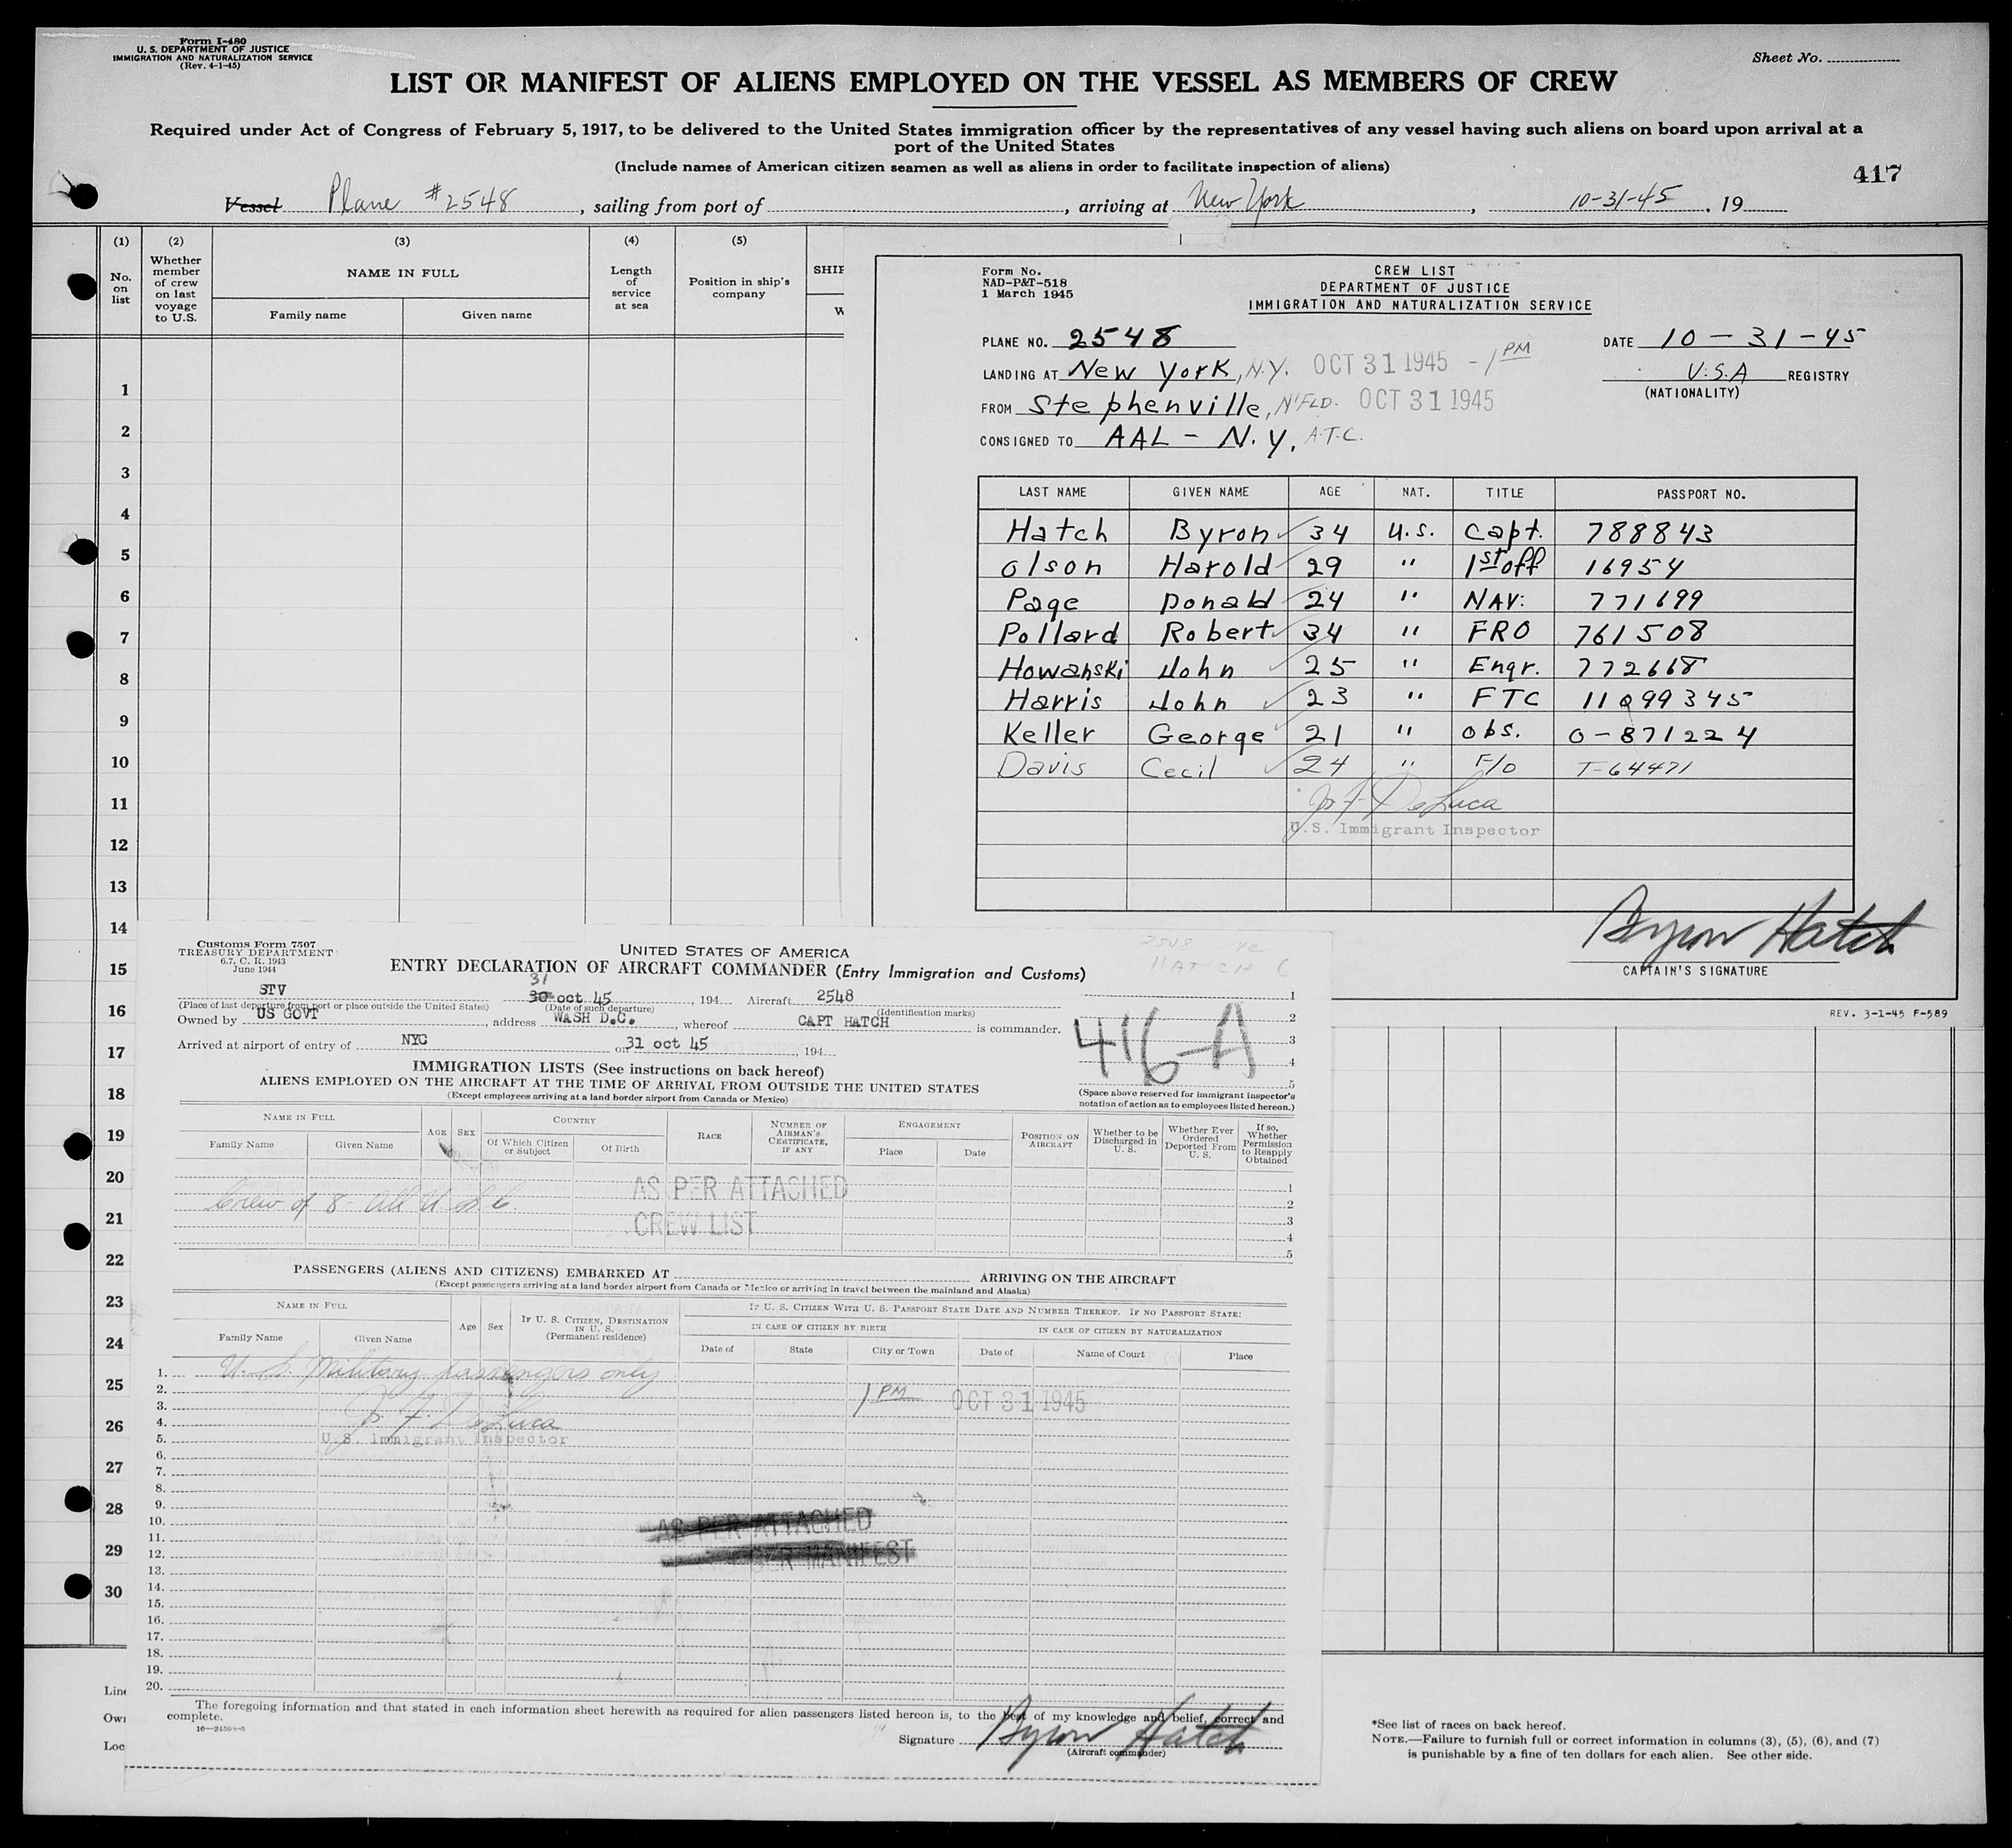 Form I-480
U. S. DEPARTMENT OF JUSTICE
IMMIGRATION AND NATURALIZATION SERVICE
(Rev. 4-1-45)
Sheet No.
LIST OR MANIFEST OF ALIENS EMPLOYED ON THE VESSEL AS MEMBERS OF CREW
Required under Act of Congress of February 5, 1917, to be delivered to the United States immigration officer by the representatives of any vessel having such aliens on board upon arrival at a
port of the United States
(Include names of American citizen seamen as well as aliens in order to facilitate inspection of aliens)
417
Vessel Plane #2548, sailing from port of , arriving at New York, 10-31-45, 19
(1) (2) (3) (4) (5)
No. on list
Whether member of crew on last voyage to U.S.
NAME IN FULL
Family name Given name
Length of service at sea
Position in ship's company
SHIP
W
1
2
3
4
5
6
7
8
9
10
11
12
13
14
15
16
17
18
19
20
21
22
23
24
25
26
27
28
29
30
Line
Own
Loc
Form No.
NAD-P&T-518
1 March 1945
CREW LIST
DEPARTMENT OF JUSTICE
IMMIGRATION AND NATURALIZATION SERVICE
PLANE NO. 2548 DATE 10-31-45
LANDING AT New York, N.Y. OCT 31 1945 - 1 PM U.S.A REGISTRY
(NATIONALITY)
FROM Stephenville, N'FLD. OCT 31 1945
CONSIGNED TO AAL - N.Y. A.T.C.
LAST NAME GIVEN NAME AGE NAT. TITLE PASSPORT NO.
Hatch Byron 34 U.S. Capt. 788843
Olson Harold 29 " 1st off 16954
Page Donald 24 " NAV: 771699
Pollard Robert 34 " FRO 761508
Howanski John 25 " Engr. 772668
Harris John 23 " FTC 11099345
Keller George 21 " obs. O-871224
Davis Cecil 24 " F/O T-64471
Jos F. DeLuca
U.S. Immigrant Inspector
Byron Hatch
CAPTAIN'S SIGNATURE
REV. 3-1-45 F-589
Customs Form 7507
TREASURY DEPARTMENT
6.7, C. R. 1943
June 1944
UNITED STATES OF AMERICA
2548
HATCH 6
ENTRY DECLARATION OF AIRCRAFT COMMANDER (Entry Immigration and Customs)
31
STV 30 oct 45, 194 Aircraft 2548
(Place of last departure from port or place outside the United States) (Date of such departure) (Identification marks)
Owned by US GOVT, address WASH D.C., whereof CAPT HATCH is commander.
Arrived at airport of entry of NYC on 31 oct 45, 194
1
2
3
4
5
416-A
(Space above reserved for immigrant inspector's
notation of action as to employees listed hereon.)
IMMIGRATION LISTS (See instructions on back hereof)
ALIENS EMPLOYED ON THE AIRCRAFT AT THE TIME OF ARRIVAL FROM OUTSIDE THE UNITED STATES
(Except employees arriving at a land border airport from Canada or Mexico)
NAME IN FULL
Family Name Given Name
AGE SEX
COUNTRY
Of Which Citizen or Subject Of Birth
RACE
NUMBER OF AIRMAN'S CERTIFICATE, IF ANY
ENGAGEMENT
Place Date
POSITION ON AIRCRAFT
Whether to be Discharged in U. S.
Whether Ever Ordered Deported From U. S.
If so, Whether Permission to Reapply Obtained
Crew of 8 - All U.S.C.
AS PER ATTACHED
CREW LIST
1
2
3
4
5
PASSENGERS (ALIENS AND CITIZENS) EMBARKED AT ARRIVING ON THE AIRCRAFT
(Except passengers arriving at a land border airport from Canada or Mexico or arriving in travel between the mainland and Alaska)
NAME IN FULL
Family Name Given Name
Age Sex
IF U. S. CITIZEN, DESTINATION IN U. S. (Permanent residence)
IF U. S. CITIZEN WITH U. S. PASSPORT STATE DATE AND NUMBER THEREOF. IF NO PASSPORT STATE:
IN CASE OF CITIZEN BY BIRTH IN CASE OF CITIZEN BY NATURALIZATION
Date of State City or Town Date of Name of Court Place
1. U.S. Military passengers only
2. 1 PM OCT 31 1945
3.
4. Jos. F. DeLuca
5. U.S. Immigrant Inspector
6.
7.
8.
9.
10. AS PER ATTACHED
11.
12. MANIFEST
13.
14.
15.
16.
17.
18.
19.
20.
The foregoing information and that stated in each information sheet herewith as required for alien passengers listed hereon is, to the best of my knowledge and belief, correct and
complete.
Signature Byron Hatch
(Aircraft commander)
*See list of races on back hereof.
NOTE.—Failure to furnish full or correct information in columns (3), (5), (6), and (7)
is punishable by a fine of ten dollars for each alien. See other side.